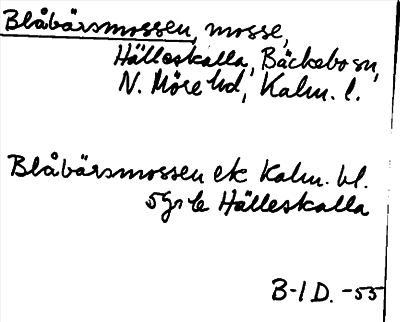 Blåbärsmossen, mosse,
Hälleskalla, Bäckebo sn,
N. Möre hd, Kalm. l.
Blåbärsmossen ek Kalm. bl.
5 Hälleskalla
B-I D. -55